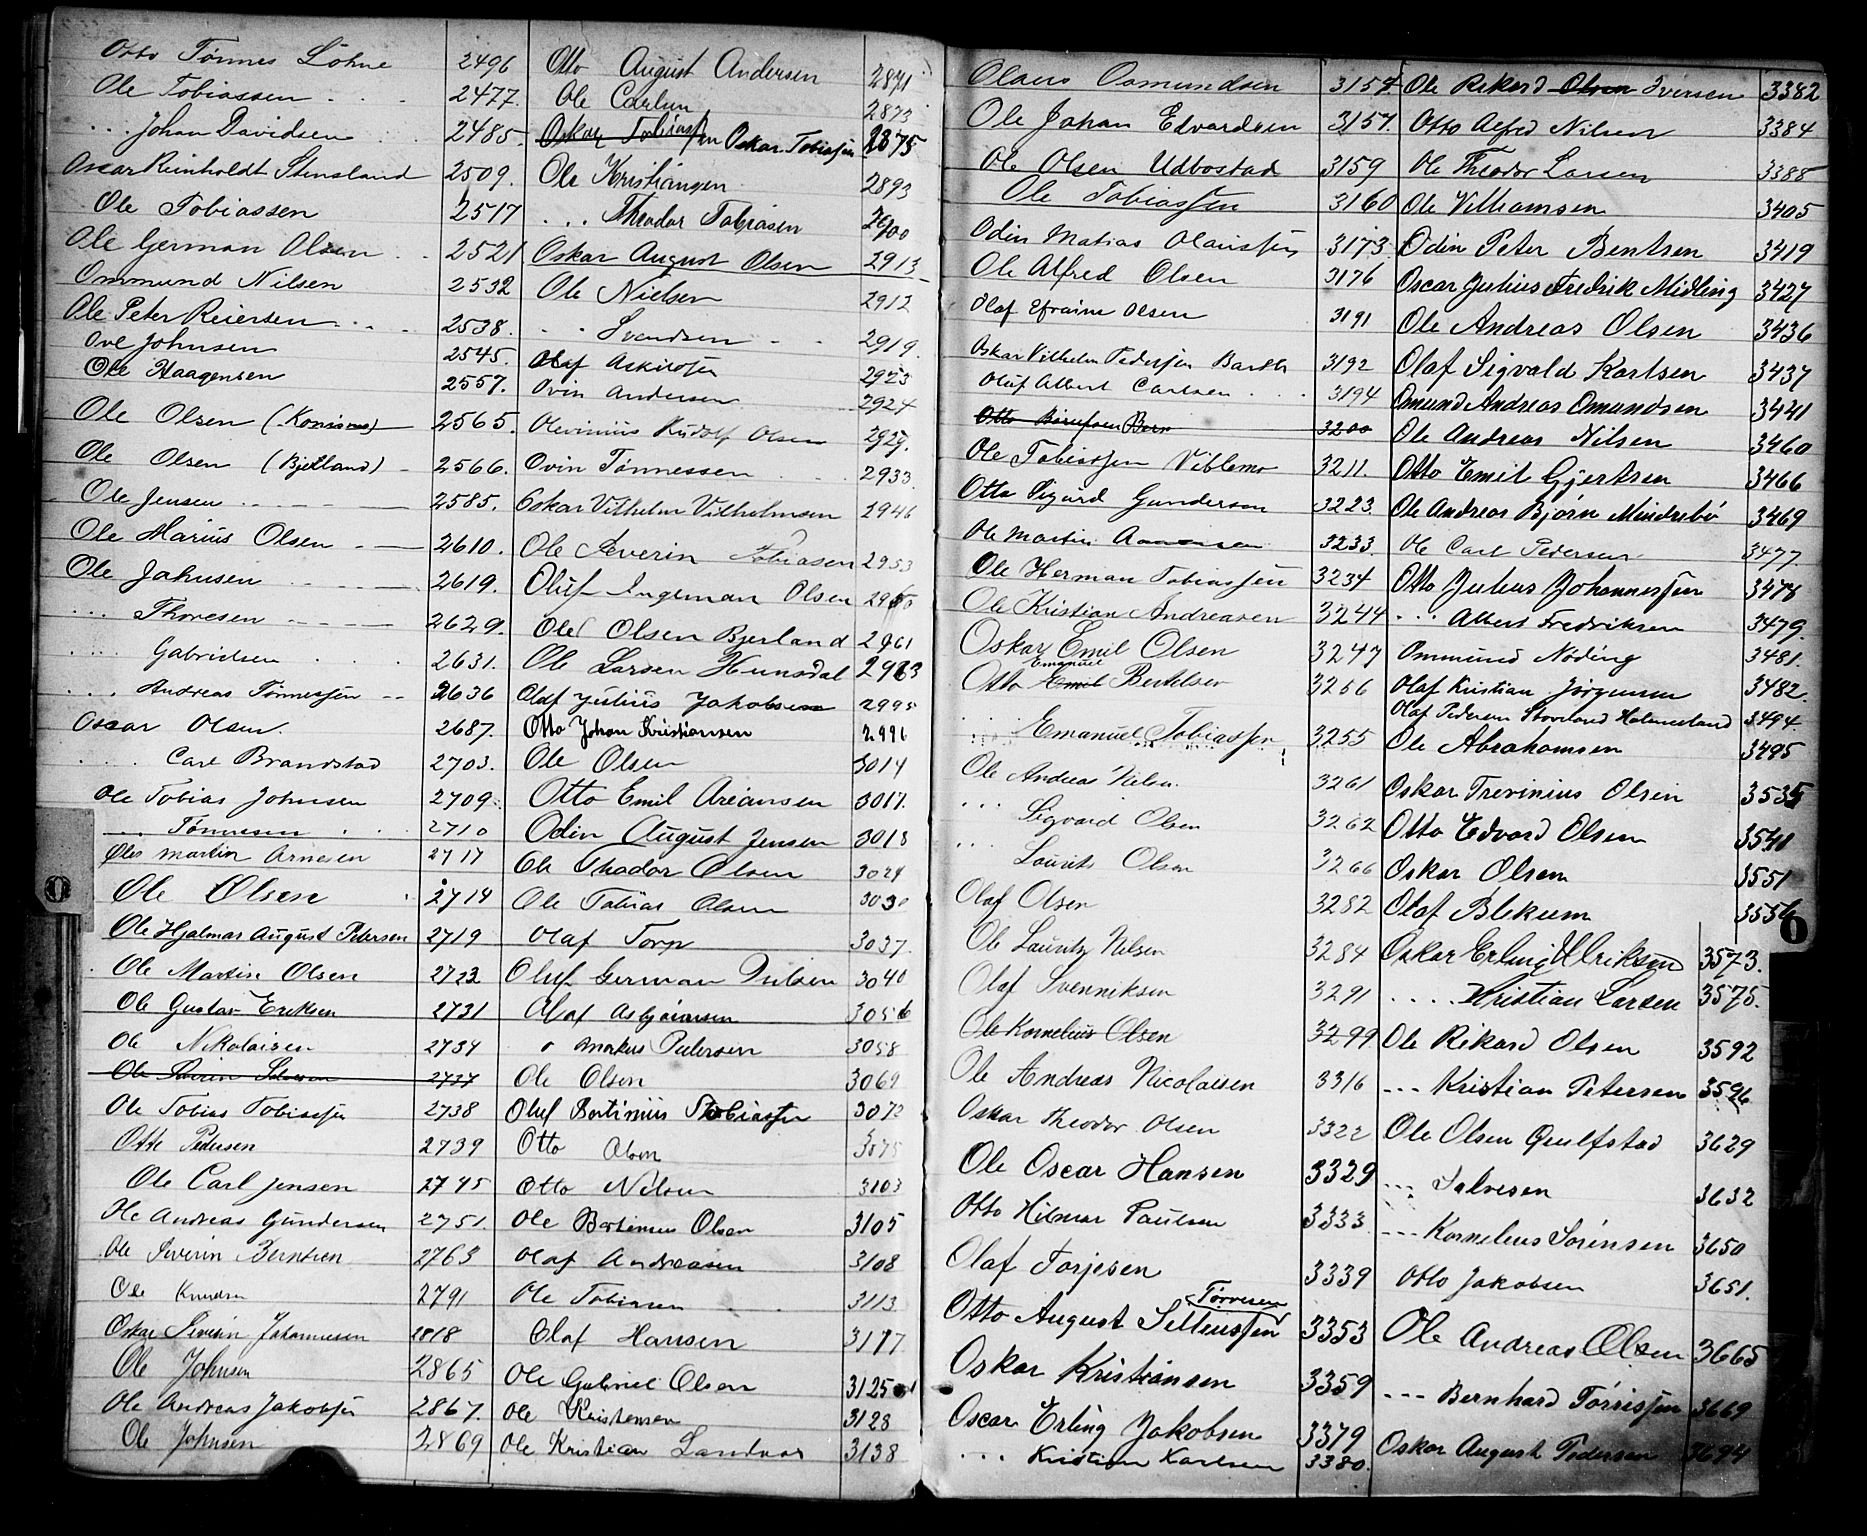 Otto Tønnes Løhne 2496
Ole Tobiassen . . . 2477.
... Johan Davidsen 2485.
Oscar Reinholdt Stensland 2509.
Ole Tobiassen 2517
Ole German Olsen . . 2521
Ommund Nilsen 2532
Ole Peter Reiersen 2538.
Ove Johnsen 2545.
Ole Haagensen 2557.
Ole Olsen (Konismo) 2565.
Ole Olsen (Bjelland) 2566.
Ole Jensen 2585.
Ole Marius Olsen 2610.
Ole Jahnsen 2619.
... Thorsen 2629.
... Gabrielsen 2631.
... Andreas Tønnessen 2636
Oscar Olsen. 2687.
.... Carl Brandstad 2703.
Ole Tobias Johnsen 2709.
... Tønnesen 2710
Ole Martin Arnesen 2717
Ole Olsen 2714
Ole Hjalmar August Petersen 2719
Ole Martin Olsen 2723
Ole Gustav Eriksen 2731
Ole Nikolaisen 2734
Ole 2737
Ole Tobias Tobiassen 2738
Otto Pedersen 2739
Ole Carl Jensen 2745
Ole Andreas Gundersen 2751
Ole Severin Berntsen 2763
Ole Knudsen 2791
Oskar Severin Johannesen 2818
Ole Johnsen 2865
Ole Andreas Jakobsen 2867.
Ole Johnsen 2869
Otto August Andersen 2871
Ole Carlsen 2873
Oskar Tobiassen Oskar Tobiassen 2875
Ole Kristiansen 2893
... Theodor Tobiasen 2900
Oskar August Olsen 2913
Ole Nielsen 2912
. . Svendsen 2919.
Olaf Askilosen 2923
Ovin Andersen 2924
Olevinius Rudolf Olsen 2929.
Ovin Tønnessen 2933.
Oskar Vilhelm Vilholmsen 2946
Ole Severin Tobiasen 2953
Oluf Ingeman Olsen 2960
Ole Olsen Bjerland 2961
Ole Larsen Hunsdal 2963
Olaf Julius Jakobsen 2995
Otto Johan Kristiansen 2996
Ole Olsen 3014
Otto Emil Areansen 3017.
Odin August Jensen 3018
Ole Theodor Olsen 3024
Ole Tobias Olsen 3030
Olaf Torp 3037.
Oluf German Nilsen 3040
Olaf Asbjørnsen 3056
" Markus Pedersen 3058
Ole Olsen 3069
Oluf Bertinius Tobiassen 3072
Otto Olsen 3075
Otto Nilsen 3103
Ole Bertinius Olsen 3105
Olaf Andreasen 3108
Ole Tobiasen 3113
Olaf Hansen 3117
Ole Gabriel Olsen 3125
Ole Kristensen 3128
Ole Kristian Landvor 3138
Olaus Osmundsen 3154
Ole Johan Edvardsen 3157.
Ole Olsen Udbostad 3159
Ole Tobiassen 3160
Odin Matias Olaussen 3173.
Ole Alfred Olsen 3176
Olaf Efraim Olsen 3191
Oskar Vilhelm Pedersen Barth 3192
Oluf Albert Carlsen . . . 3194
Otto 3200
Ole Tobiassen Viblemo 3211.
Otto Sigurd Gundersen 3223.
Ole Martin 3233.
Ole Herman Tobiassen 3234
Ole Kristian Andreasen 3244
Oskar Emil Olsen 3247
Otto Emil Emanuel Bertelsen 3256
... Emanuel Tobiassen 3255
Ole Andreas Nilsen. 3261
... Sigvard Olsen 3262
... Laurits Olsen 3266
Olaf Olsen 3282
Ole Lauritz Nilsen 3284
Olaf Svenniksen 3291
Ole Kornelius Olsen 3299
Ole Andreas Nicolaisen 3316
Oskar Theodor Olsen 3322
Ole Oscar Hansen 3329
Otto Hilmar Paulsen 3333
Olaf Torjesen 3339
Otto August Selliussen Tørresen 3353
Oskar Kristiansen 3359
Oscar Erling Jakobsen 3379
... Kristian Karlsen 3380.
Ole Rikard Olsen Iversen 3382
Otto Alfred Nilsen 3384
Ole Theodor Larsen 3388
Ole Villiamsen 3405
Odin Peter Bentsen 3419
Oscar Julius Fredrik Midling 3427
Ole Andreas Olsen 3436
Olaf Sigvald Karlsen 3437
Omund Andreas Omundsen 3441
Ole Andreas Nilsen 3460
Otto Emil Gjertsen 3466
Ole Andreas Bjørn Mindrebø 3469
Ole Carl Pedersen 3477.
Otto Julius Johannessen 3478
... Albert Fredriksen 3479
Ommund Nøding 3481.
Olaf Kristian Jørgensen 3482.
Olaf Pedersen Stovland Holmesland 3494.
Ole Abrahamsen 3495
Oskar Trevinius Olsen 3535
Otto Edvard Olsen 3541
Oskar Olsen 3551
Olaf Blekum 3556
Oskar Erling Ulriksen 3573.
.... Kristian Larsen 3575.
Ole Rikard Olsen 3592
... Kristian Petersen 3596
Ole Olsen Qulfstad 3629
... Salvesen 3632
... Kornelius Sørensen 3650
Otto Jakobsen 3651.
Ole Andreas Olsen 3665
... Bernhard Tørrissen 3669
Oskar August Pedersen 3694
O
O